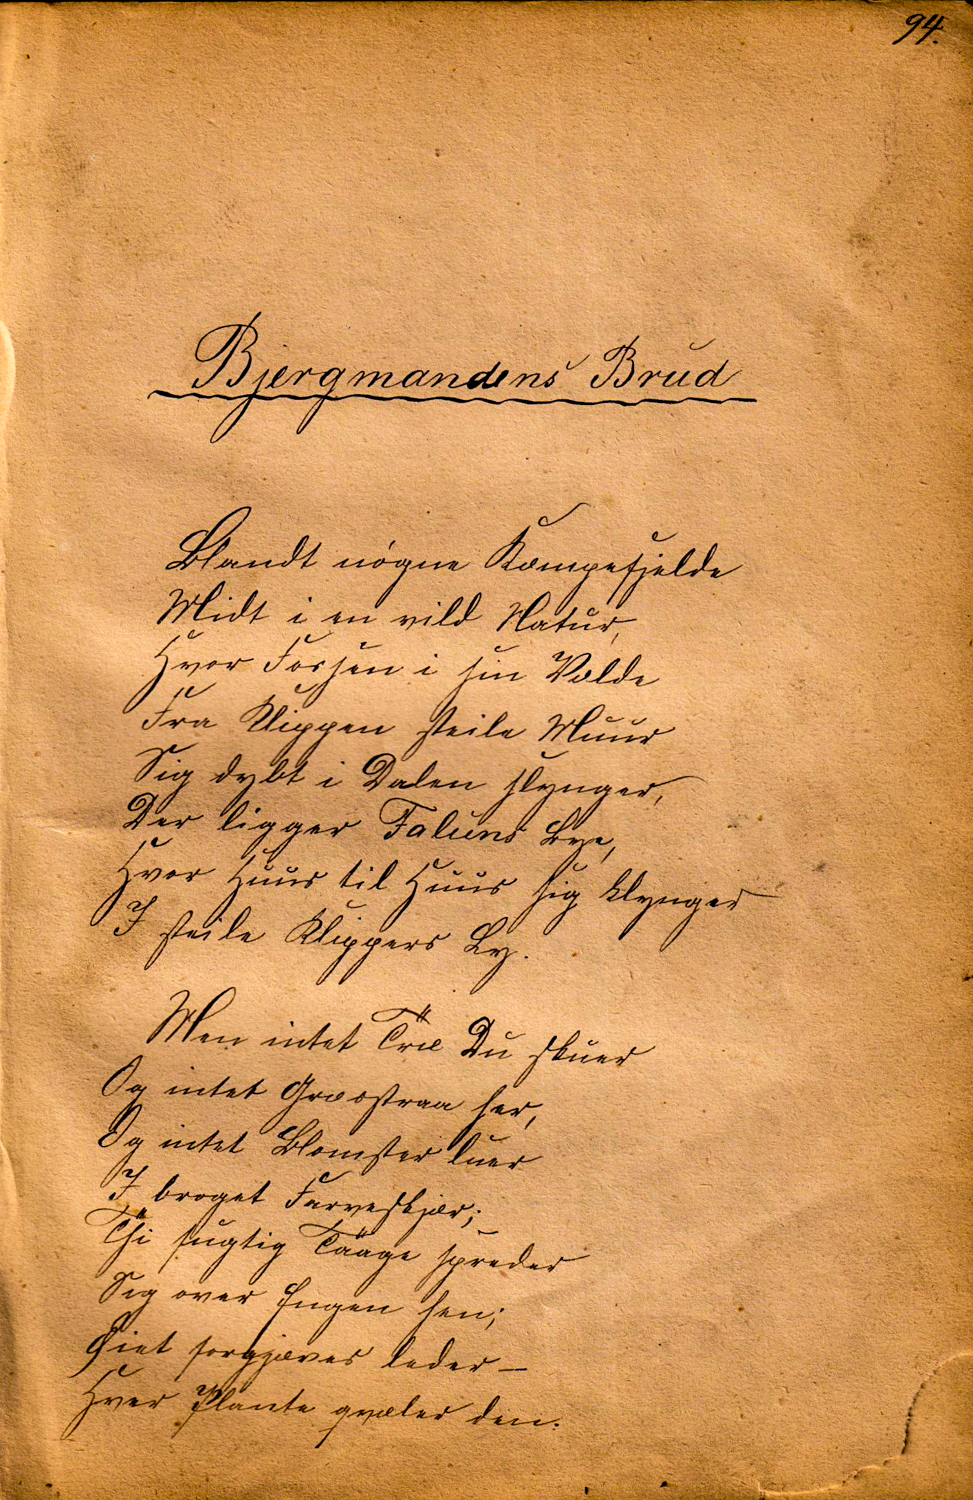 94.
Bjergmandens Brud
Blandt nøgne Kæmpefjelde
Midt i en vild Natur,
Hvor Fossen i sin Vælde
Fra Klippen steile Muur
Sig dybt i Dalen slynger,
Der ligger Faluns Bye,
Hvor Huus til Huus sig klynger
I steile Klippers Ly.
Men intet Træ Du skuer
Og intet Græsstraa her,
Og intet Blomster luer
I broget Farveskjær;
Thi fugtig Taage spreder
Sig over Engen hen;
Øiet forgjæves leder –
Hver Plante qvæler den.